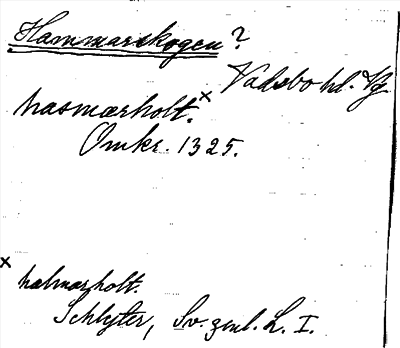 Hammarskogen?
Vadsbo hd. Vg
hasmærholt.x
Omkr. 1325.
x halmarholt.
Schlyter, Sv. L. I.